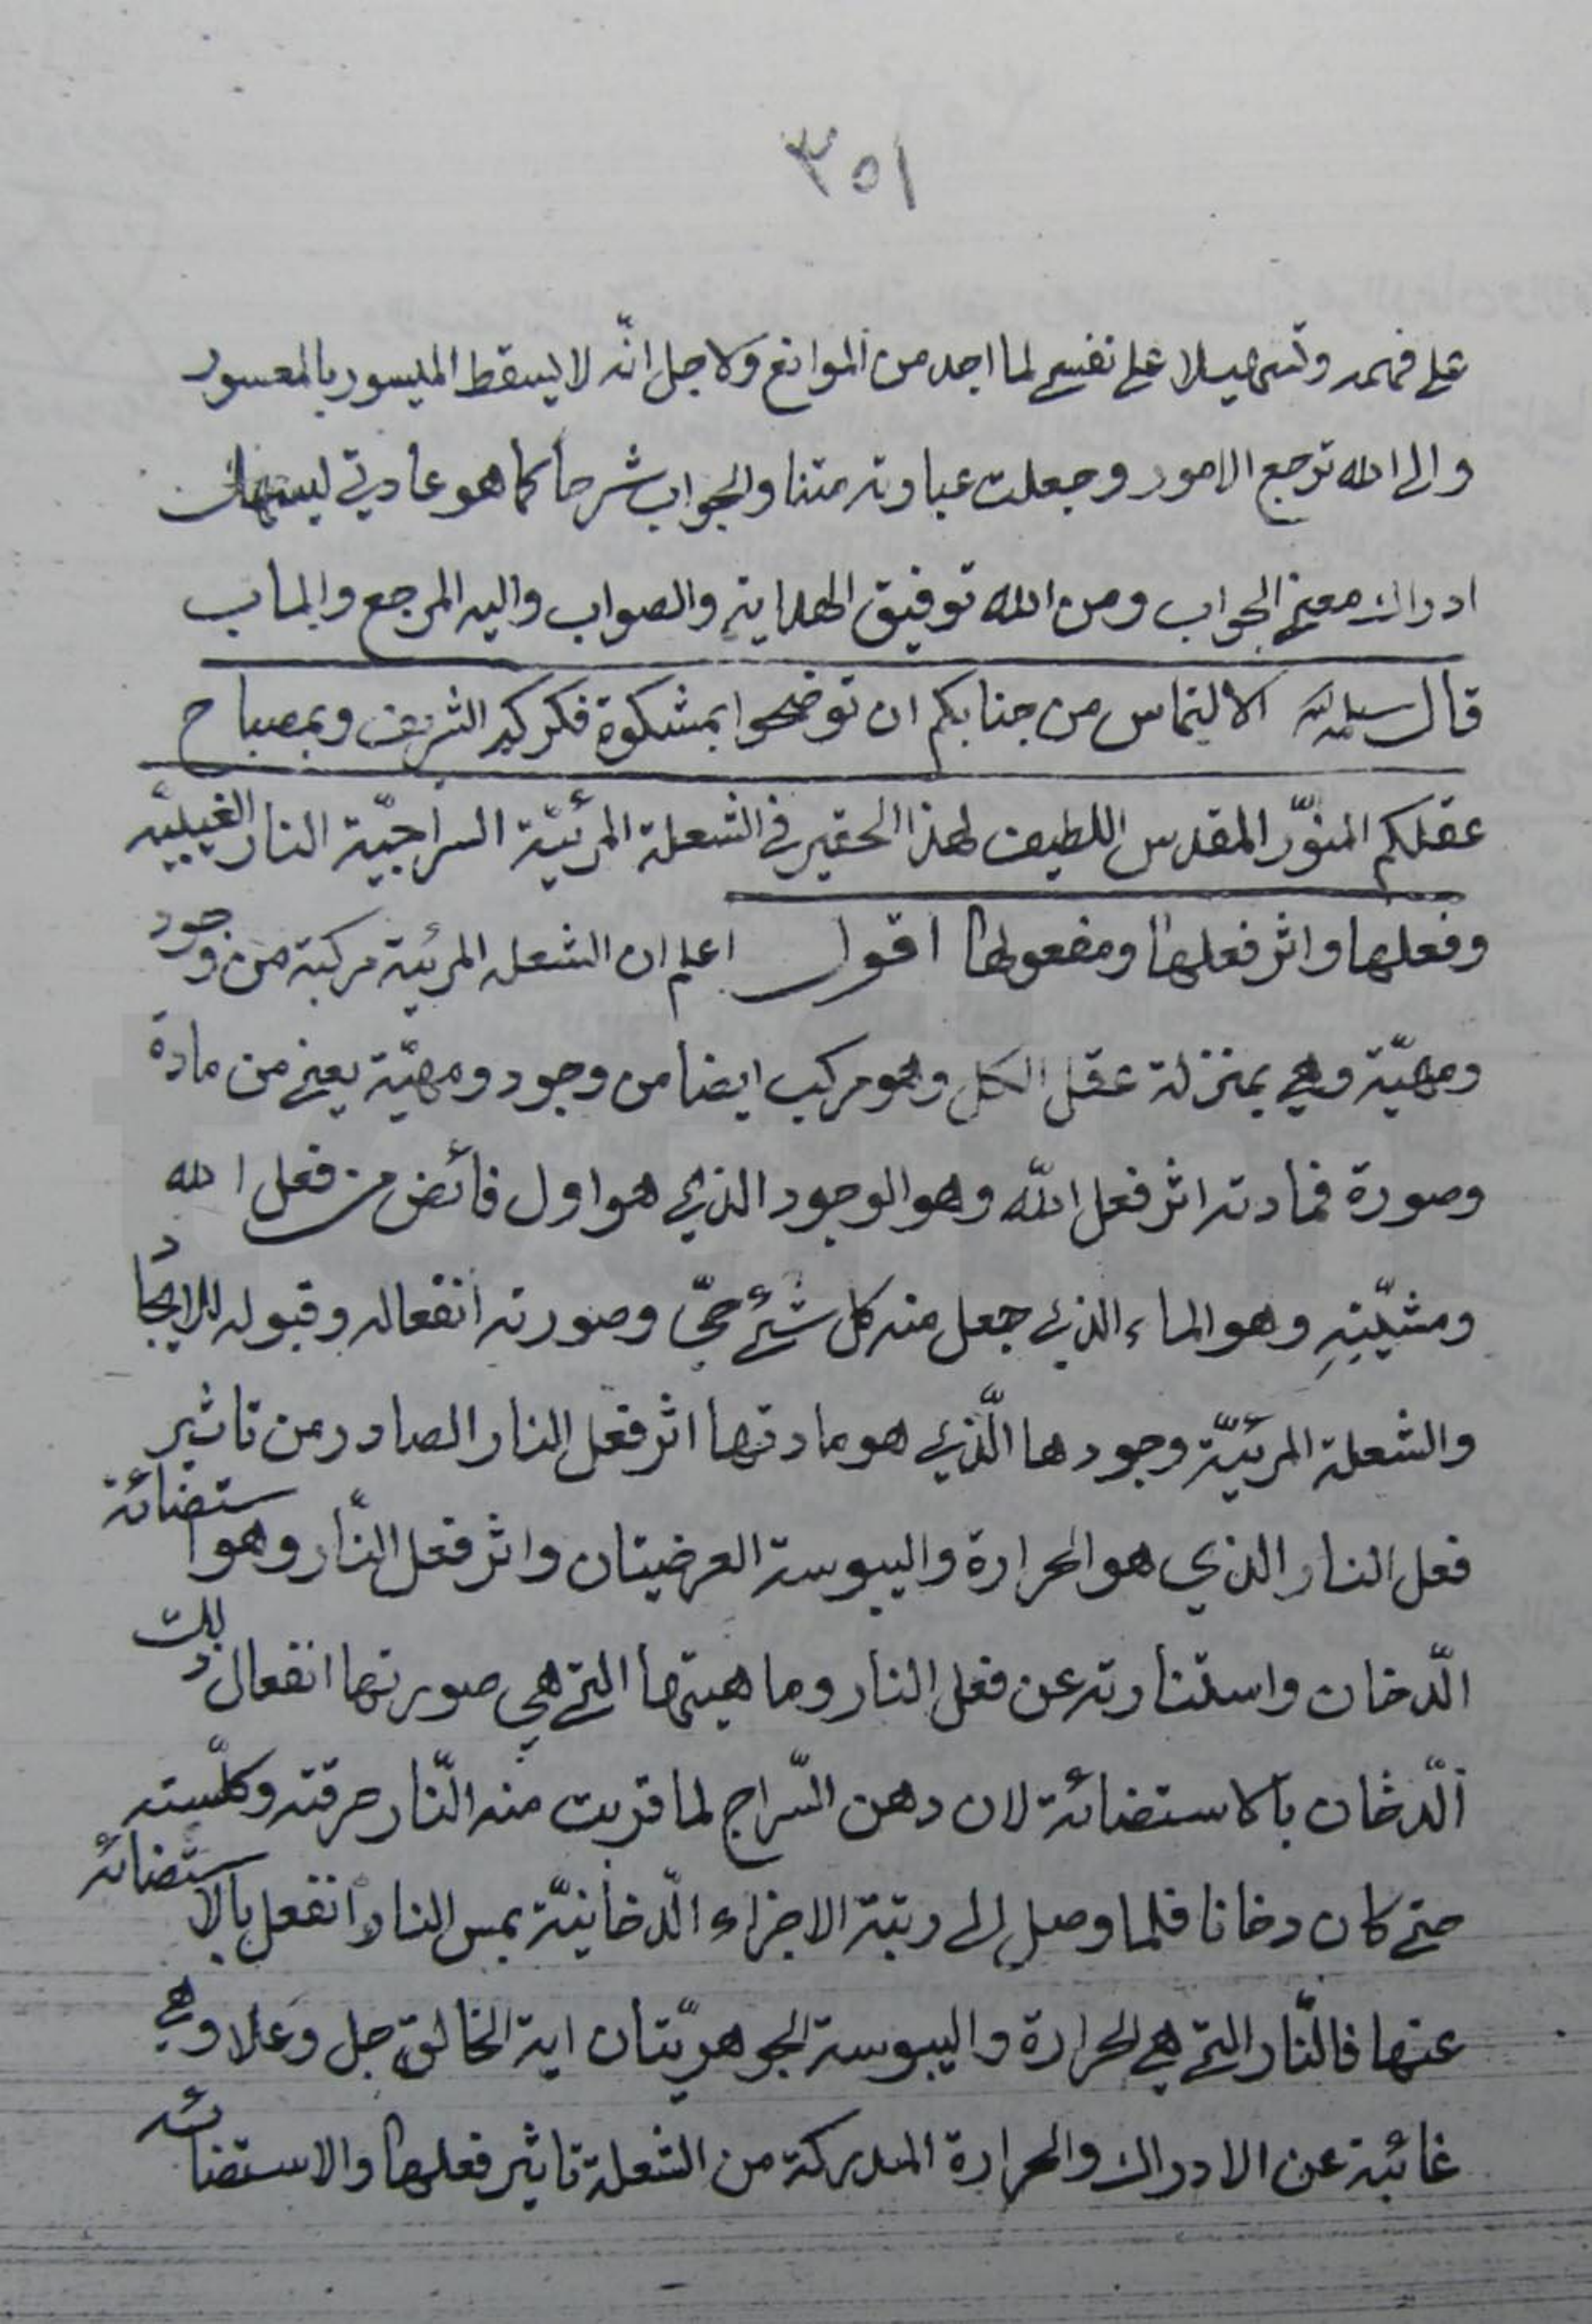 ٣٥١
على فهمه وتسهيلا على نفسي لما اجد من الموانع ولاجل انّه لا يسقط الميسور بالمعسور
والى الله ترجع الامور وجعلت عبارته متنا والجواب شرحا كما هو عادتي ليسهل
ادراك معنى الجواب ومن الله توفيق الهداية والصواب واليه المرجع والمآب
قال سلمه الله الالتماس من جنابكم ان توضحوا بمشكوة فكركم الشريف وبمصباح
عقلكم المنوّر المقدس اللطيف لهذا الحقير في الشعلة المرئيّة السراجيّة النار الغيبيّة
وفعلها واثر فعلها ومفعولها اقول اعلم ان الشعله المرئية مركبة من وجود
ومهيّة وهي بمنزلة عقل الكل وهو مركب ايضا من وجود ومهيّة يعني من مادة
وصورة فمادته اثر فعل الله وهو الوجود الذي هو اول فائض من فعل الله
ومشيّتِهِ وهو الماء الذي جعل منه كل شئ حيّ وصورته انفعاله وقبوله للايجاد
والشعلة المرئيّة وجودها الّذي هو مادتها اثر فعل النار الصادر من تاثير
فعل النار الذي هو الحرارة واليبوسة العرضيتان واثر فعل النّار وهو استضائة
الّدخان واستنارته عن فعل النار وماهيتها التي هي صورتها انفعال ذلك
الّدخان بالاستضائة لان دهن السّراج لما قربت منه النّار حرقته وكلّسته
حتى كان دخانا فلما وصل الى رتبة الاجزاء الّدخانيّة بمس النار انفعل بالاستضائه
عنها فالنّار التي هي الحرارة واليبوسة الجوهريّتان اية الخالق جل وعلا وهي
غائبة عن الادراك والحرارة المدركة من الشعلة تاثير فعلها والاستضائه